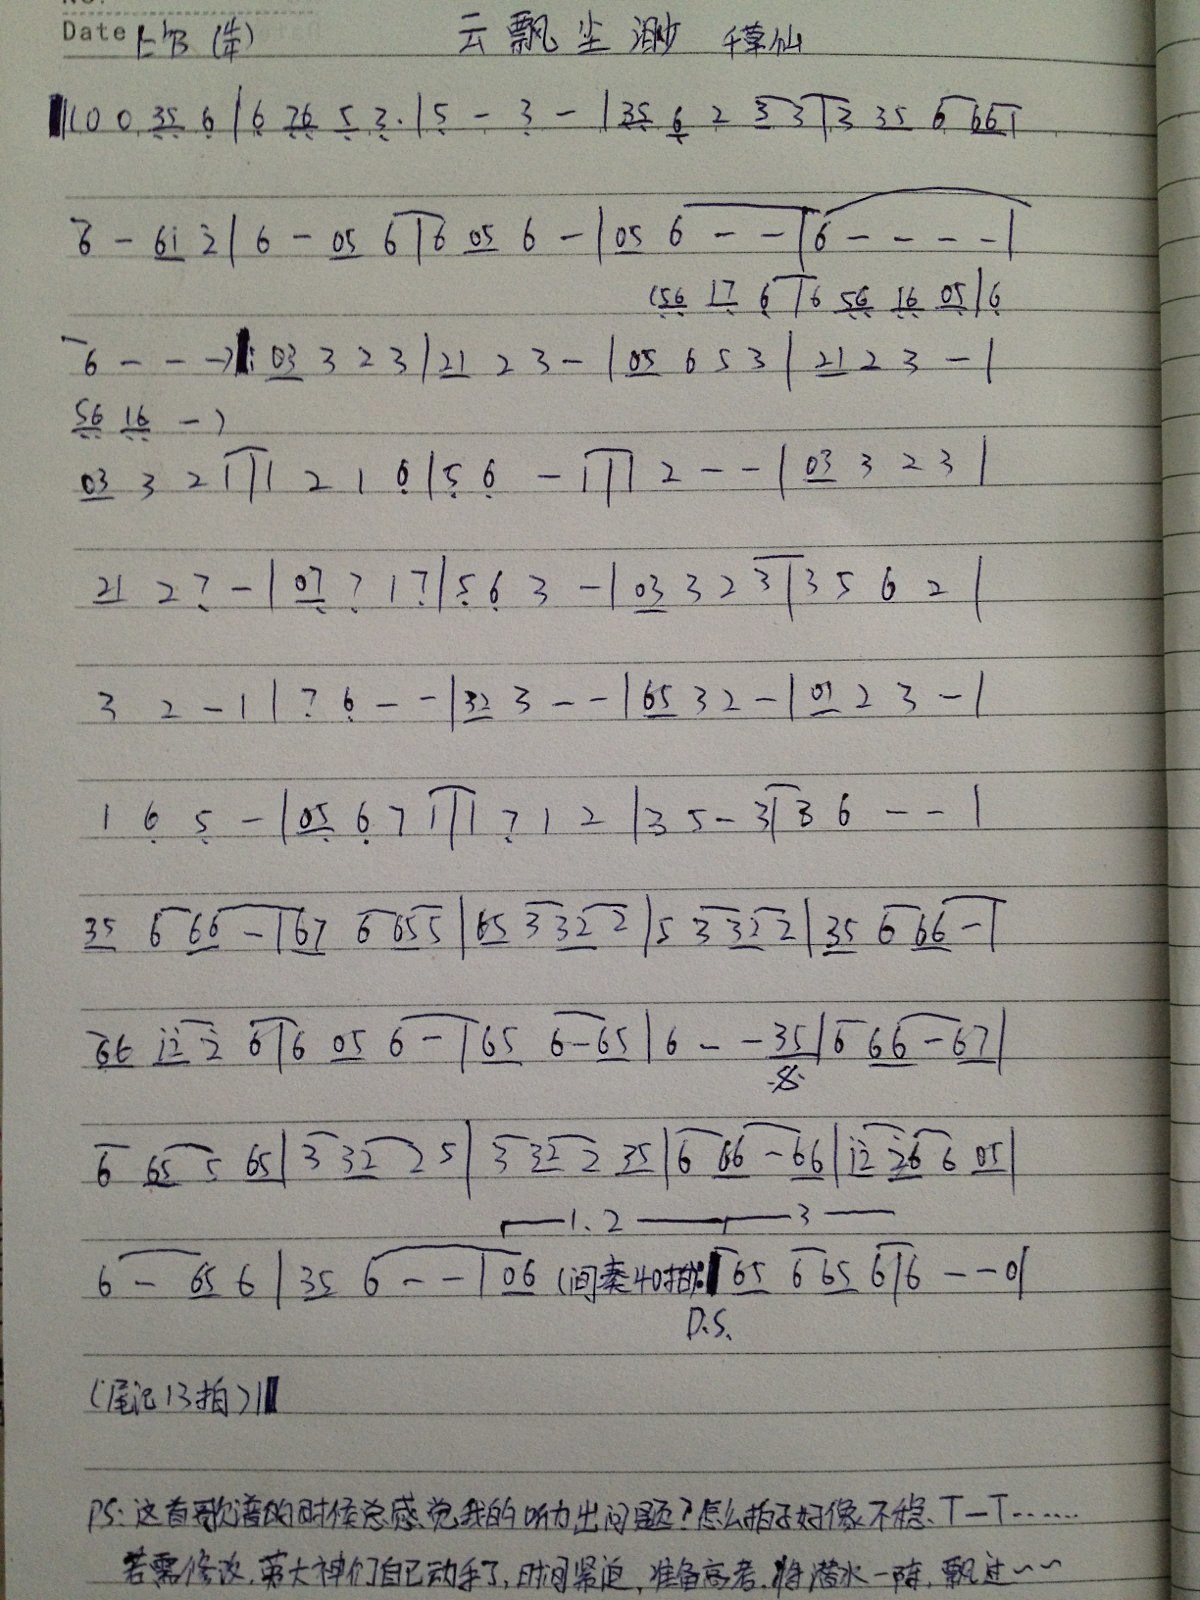 Date 1=♭B (4/4) 云飘尘渺 千草仙
‖(0 0 35 6 | 6 76 5 3. | 5 - 3 - | 35 6 2 3 3 | 3 35 6 66 |
6 - 6i 2 | 6 - 05 6 | 6 05 6 - | 05 6 - - | 6 - - - - |
(56 17 6 | 6 56 16 05 | 6
6 - - -) ‖: 03 3 2 3 | 21 2 3 - | 05 6 5 3 | 21 2 3 - |
56 16 -)
03 3 2 1 | 1 2 1 6 | 5 6 - 1 | 1 2 - - | 03 3 2 3 |
21 2 7 - | 07 7 1 7 | 5 6 3 - | 03 3 2 3 | 3 5 6 2 |
3 2 - 1 | 7 6 - - | 32 3 - - | 65 3 2 - | 01 2 3 - |
1 6 5 - | 05 6 7 1 | 1 7 1 2 | 3 5 - 3 | 3 6 - - |
35 6 66 - | 67 6 65 5 | 65 3 32 2 | 5 3 32 2 | 35 6 66 - |
66 i2 2 6 | 6 05 6 - | 65 6 - 65 | 6 - - 35 | 6 66 - 67 |
𝄋
6 65 5 65 | 3 32 2 5 | 3 32 2 35 | 6 66 - 66 | i2 26 6 05 |
1. 2 3
6 - 65 6 | 35 6 - - | 06 (间奏40拍) :‖ 65 6 65 6 | 6 - - 0 |
D.S.
(尾记13拍) ‖
PS: 这首歌谱的时候总感觉我的听力出问题?怎么拍子好像不稳、T—T……
若需修改,莫大神们自己动手了,时间紧迫,准备高考.将潜水一阵,飘过~~